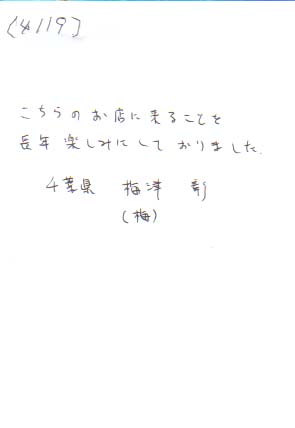 (4119)
こちらのお店に来ることを
長年楽しみにしておりました.
千葉県 梅津 彰
(梅)